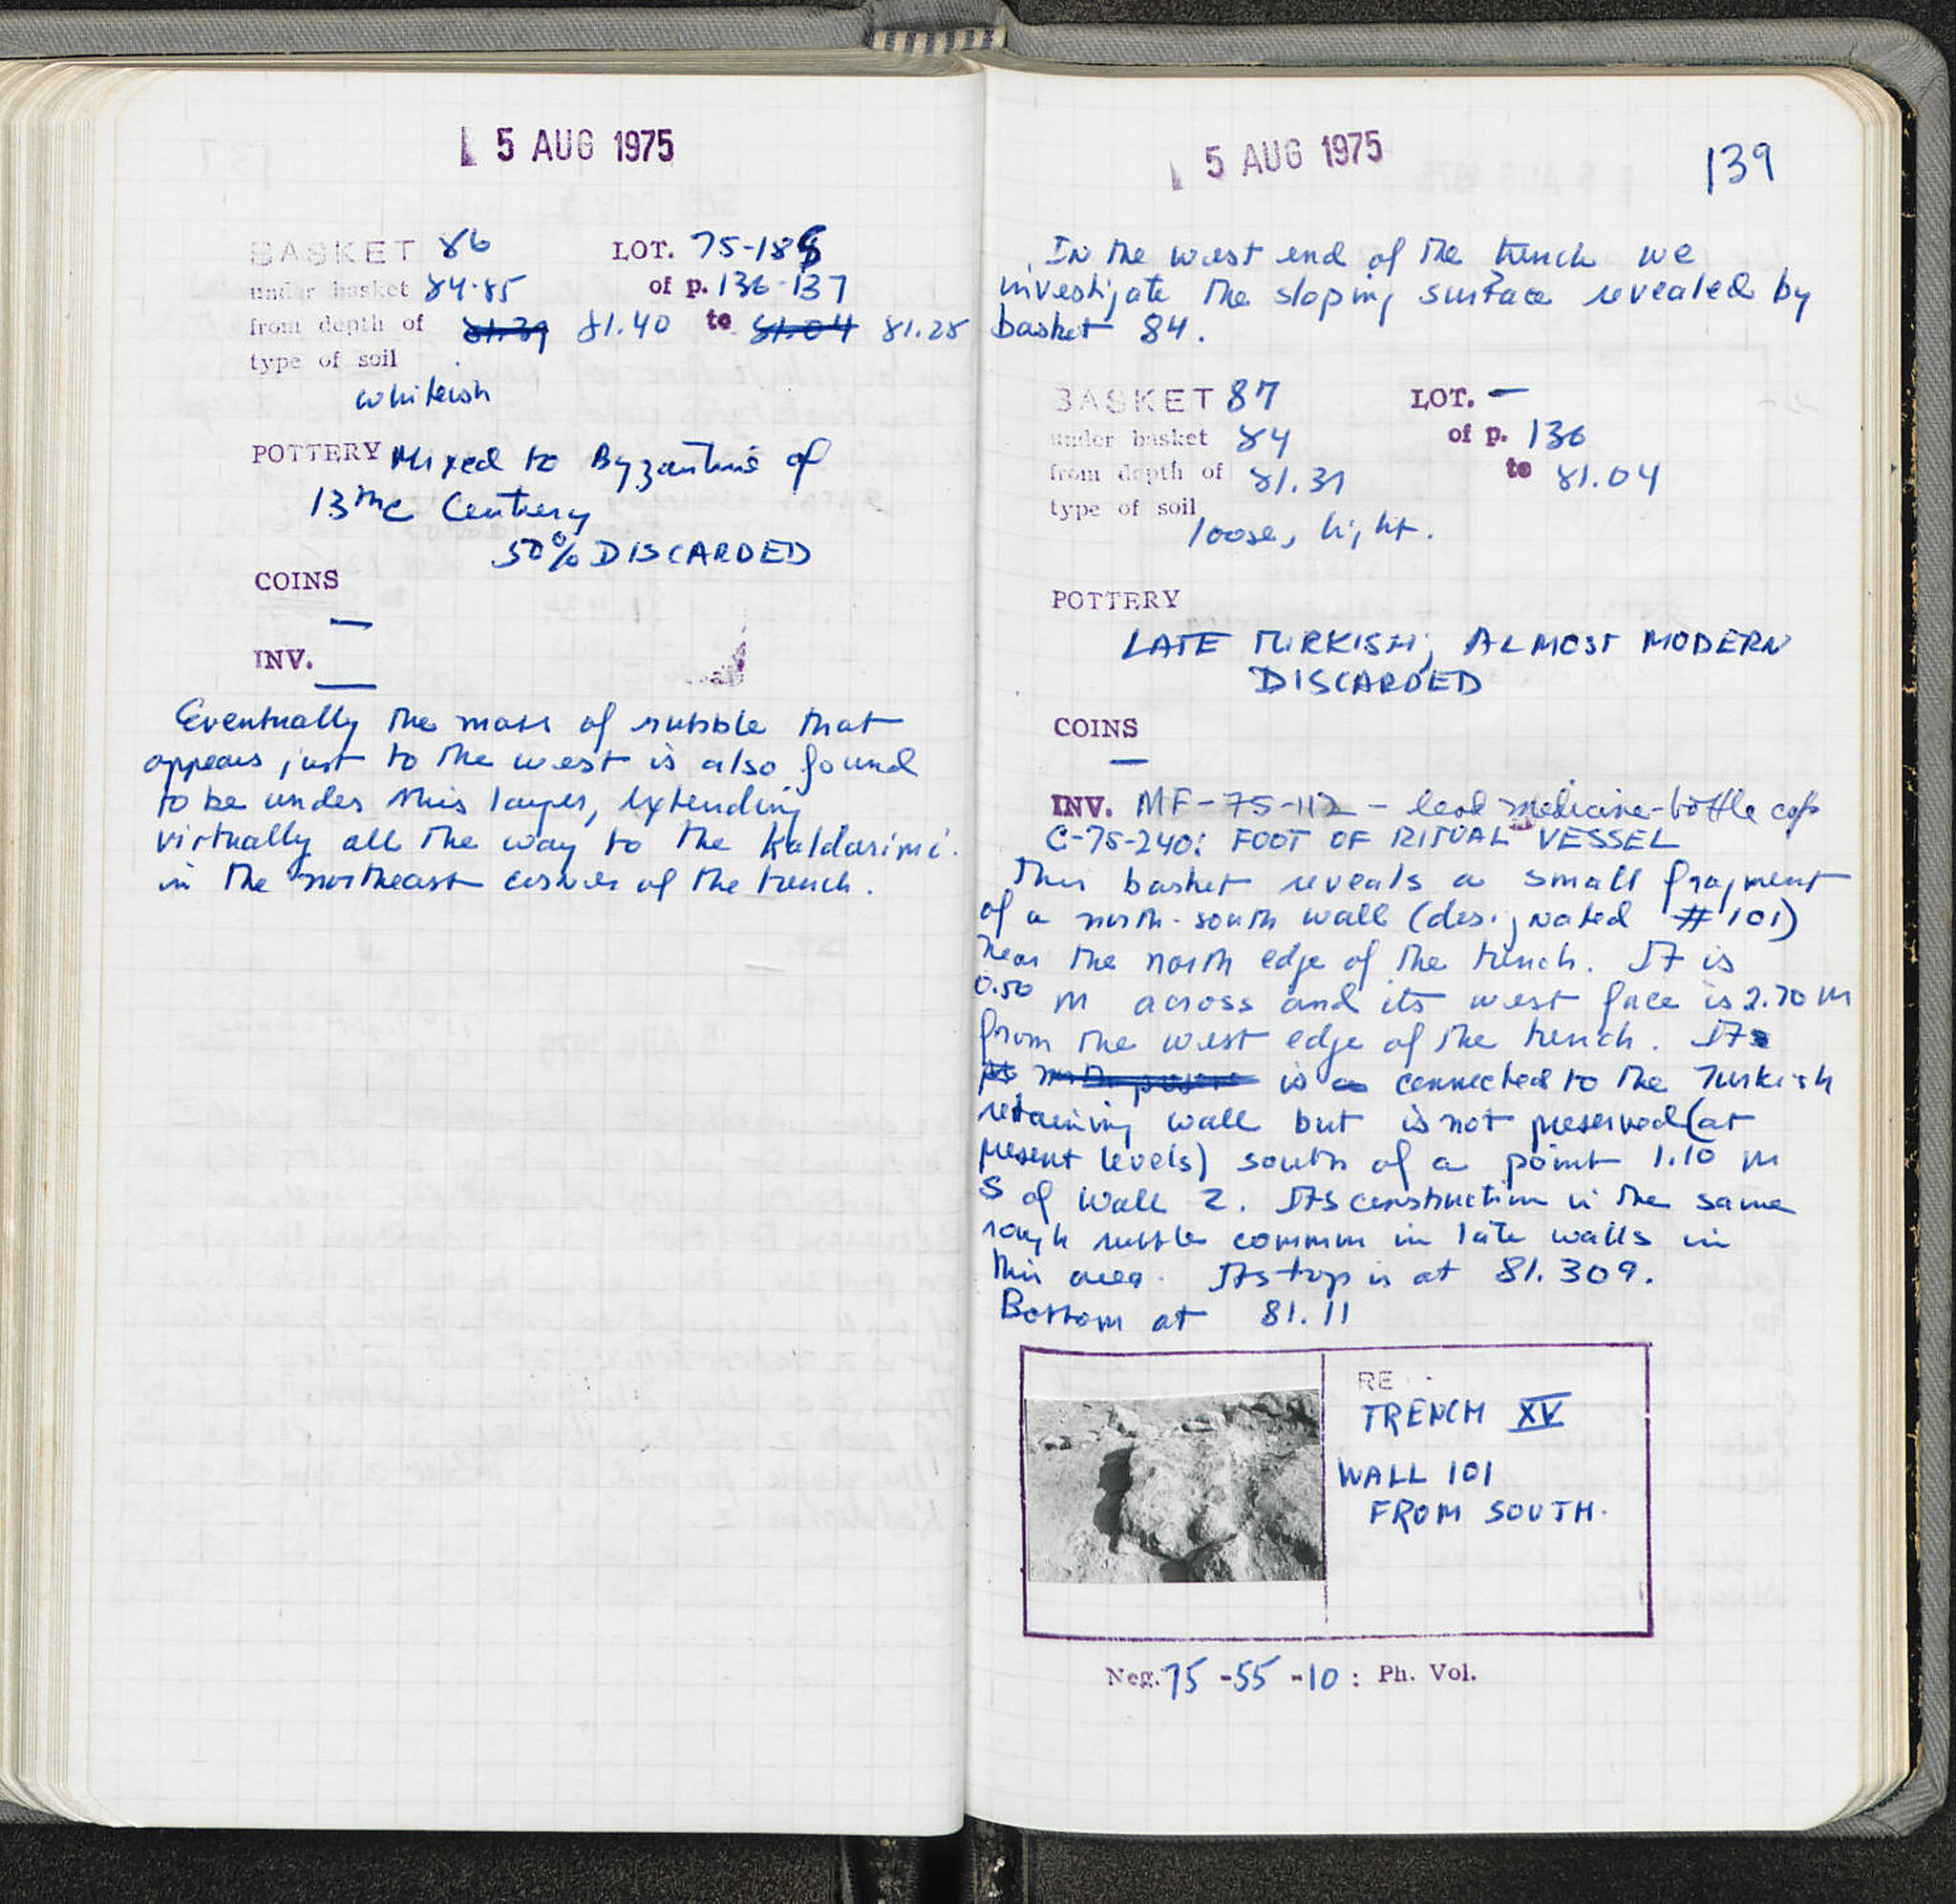 5 AUG 1975
BASKET 86 LOT. 75-18
under basket 84-85 of p. 136-137
from depth of 81.39 81.40 to 81.04 81.28
type of soil
whiteish
POTTERY Mixed to Byzantine of
13th c Century
50% DISCARDED
COINS
—
INV.
—
Eventually the mass of rubble that
appears just to the west is also found
to be under this layer, extending
virtually all the way to the Kaldarimi
in the northeast corner of the trench.
5 AUG 1975
139
In the west end of the trench we
investigate the sloping surface revealed by
basket 84.
BASKET 87 LOT. —
under basket 84 of p. 136
from depth of 81.31 to 81.04
type of soil
loose, light.
POTTERY
LATE TURKISH, ALMOST MODERN
DISCARDED
COINS
—
INV. MF-75-112 - lead medicine-bottle cap
C-75-240: FOOT OF RITUAL VESSEL
This basket reveals a small fragment
of a north-south wall (designated #101)
near the north edge of the trench. It is
0.50 m across and its west face is 2.70 m
from the west edge of the trench. It
is connected to the Turkish
retaining wall but is not preserved (at
present levels) south of a point 1.10 m
S of wall 2. Its construction is the same
rough rubble common in late walls in
this area. Its top is at 81.309.
Bottom at 81.11
RE
TRENCH XV
WALL 101
FROM SOUTH.
Neg. 75-55-10: Ph. Vol.